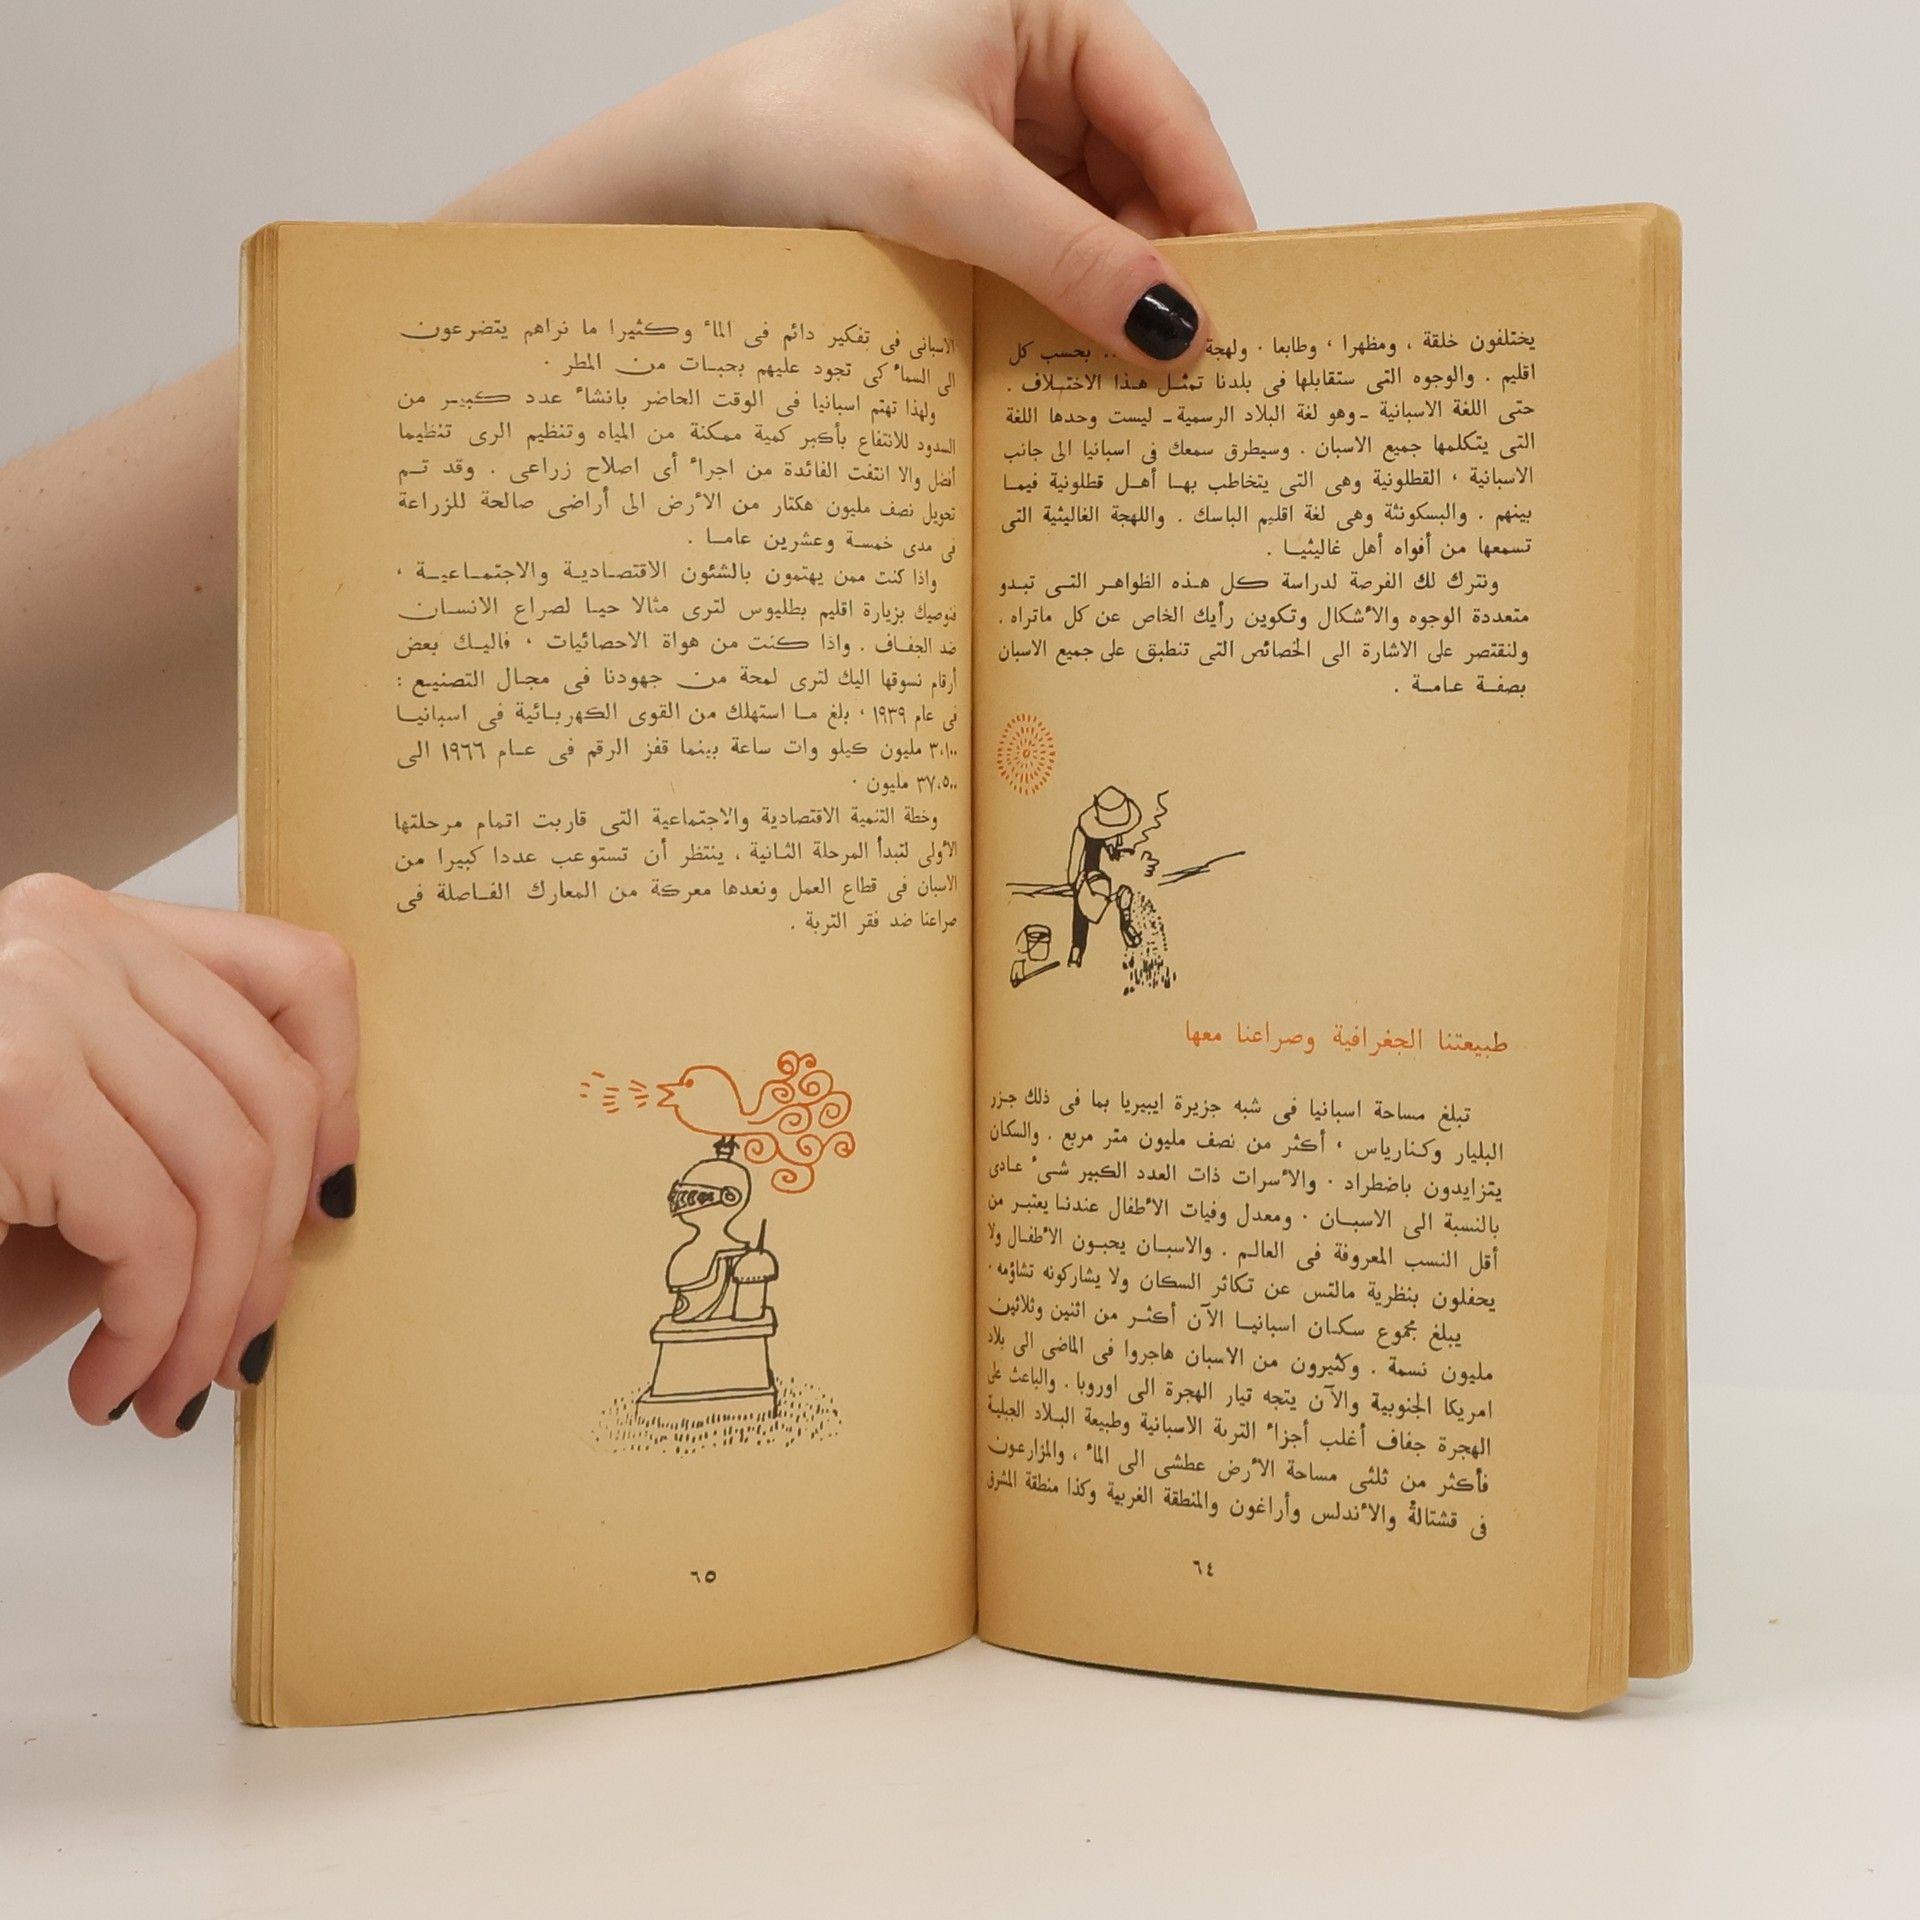 يختلفون خلقة ، ومظهرا ، وطابعا . ولهجة .. بحسب كل
اقليم . والوجوه التى ستقابلها فى بلدنا تمثـل هـذا الاختـلاف .
حتى اللغة الاسبانية ـ وهو لغة البلاد الرسمية ـ ليست وحدها اللغة
التى يتكلمها جميع الاسبان . وسيطرق سمعك فى اسبانيا الى جانب
الاسبانية ، القطلونية وهى التى يتخاطب بهـا أهـل قطلونية فيمـا
بينهم . والبسكونثة وهى لغة اقليم الباسك . واللهجة الغاليثية التى
تسمعها من أفواه أهل غاليثيـا .
ونترك لك الفرصة لدراسة كل هـذه الظواهـر التـى تبـدو
متعددة الوجوه والأشكال وتكوين رأيك الخاص عن كل ماتراه .
ولنقتصر على الاشارة الى الخصائص التى تنطبق على جميع الاسبان
بصفـة عـامـة .
طبيعتنا الجغرافية وصراعنا معها
تبلغ مساحة اسبانيا فى شبه جزيرة ايبيريا بما فى ذلك جـزر
البليار وكـنارياس ، أكثر من نصف مليون متر مربع . والسكان
يتزايدون باضطراد . والأسرات ذات العدد الكبير شـىء عـادى
بالنسبة الى الاسبـان . ومعدل وفيات الأطفال عندنـا يعتبـر من
أقل النسب المعروفة فى العالـم . والاسبـان يحبـون الأطفـال ولا
يحفلون بنظرية مالتس عن تكاثر السكان ولا يشاركونه تشاؤمه .
يبلغ مجموع سكـان اسبانيـا الآن أكثـر من اثنين وثلاثين
مليون نسمة . وكثيرون من الاسبان هاجروا فى الماضى الى بلاد
امريكا الجنوبية والآن يتجه تيار الهجرة الى اوروبا . والباعث على
الهجرة جفاف أغلب أجزاء التربة الاسبانية وطبيعة البـلاد الجبلية
فأكثر من ثلثى مساحة الأرض عطشى الى الماء ، والمزارعون
فى قشتالة والأندلس وأراغون والمنطقة الغربية وكذا منطقة المشرق
٦٤
الاسبانى فى تفكير دائم فى الماء وكثيرا ما نراهم يتضرعون
الى السماء كى تجود عليهم بحبـات من المطر .
ولهذا تهتم اسبانيا فى الوقت الحاضر بانشاء عدد كبيـر من
السدود للانتفاع بأكبر كمية ممكنة من المياه وتنظيم الرى تنظيما
أفضل والا انتفت الفائدة من اجراء أى اصلاح زراعى . وقد تـم
تحويل نصف مليون هكتار من الأرض الى أراضى صالحة للزراعة
فى مدى خمسـة وعشرين عامـا .
واذا كنت ممن يهتمون بالشئون الاقتصـاديـة والاجتمـاعيـة ،
فنوصيك بزيارة اقليم بطليوس لترى مثالا حيـا لصراع الانسـان
ضد الجفـاف . واذا كنت من هواة الاحصائيات ، فاليـك بعض
أرقام نسوقها اليك لترى لمحة من جهودنا فى مجـال التصنيـع :
فى عام ١٩٣٩ ، بلغ مـا استهلك من القوى الكهربـائية فى اسبانيـا
٣،١٠٠ مليون كيلو وات ساعة بينما قفز الرقم فى عـام ١٩٦٦ الى
٣٧،٥٠٠ مليون .
وخطة التنمية الاقتصادية والاجتماعية التى قاربت اتمام مرحلتها
الأولى لتبدأ المرحلة الثـانية ، ينتظر أن تستوعب عددا كبيرا من
الاسبان فى قطاع العمل ونعدها معركة من المعارك الفـاصلة فى
صراعنا ضد فقر التربة .
٦٥